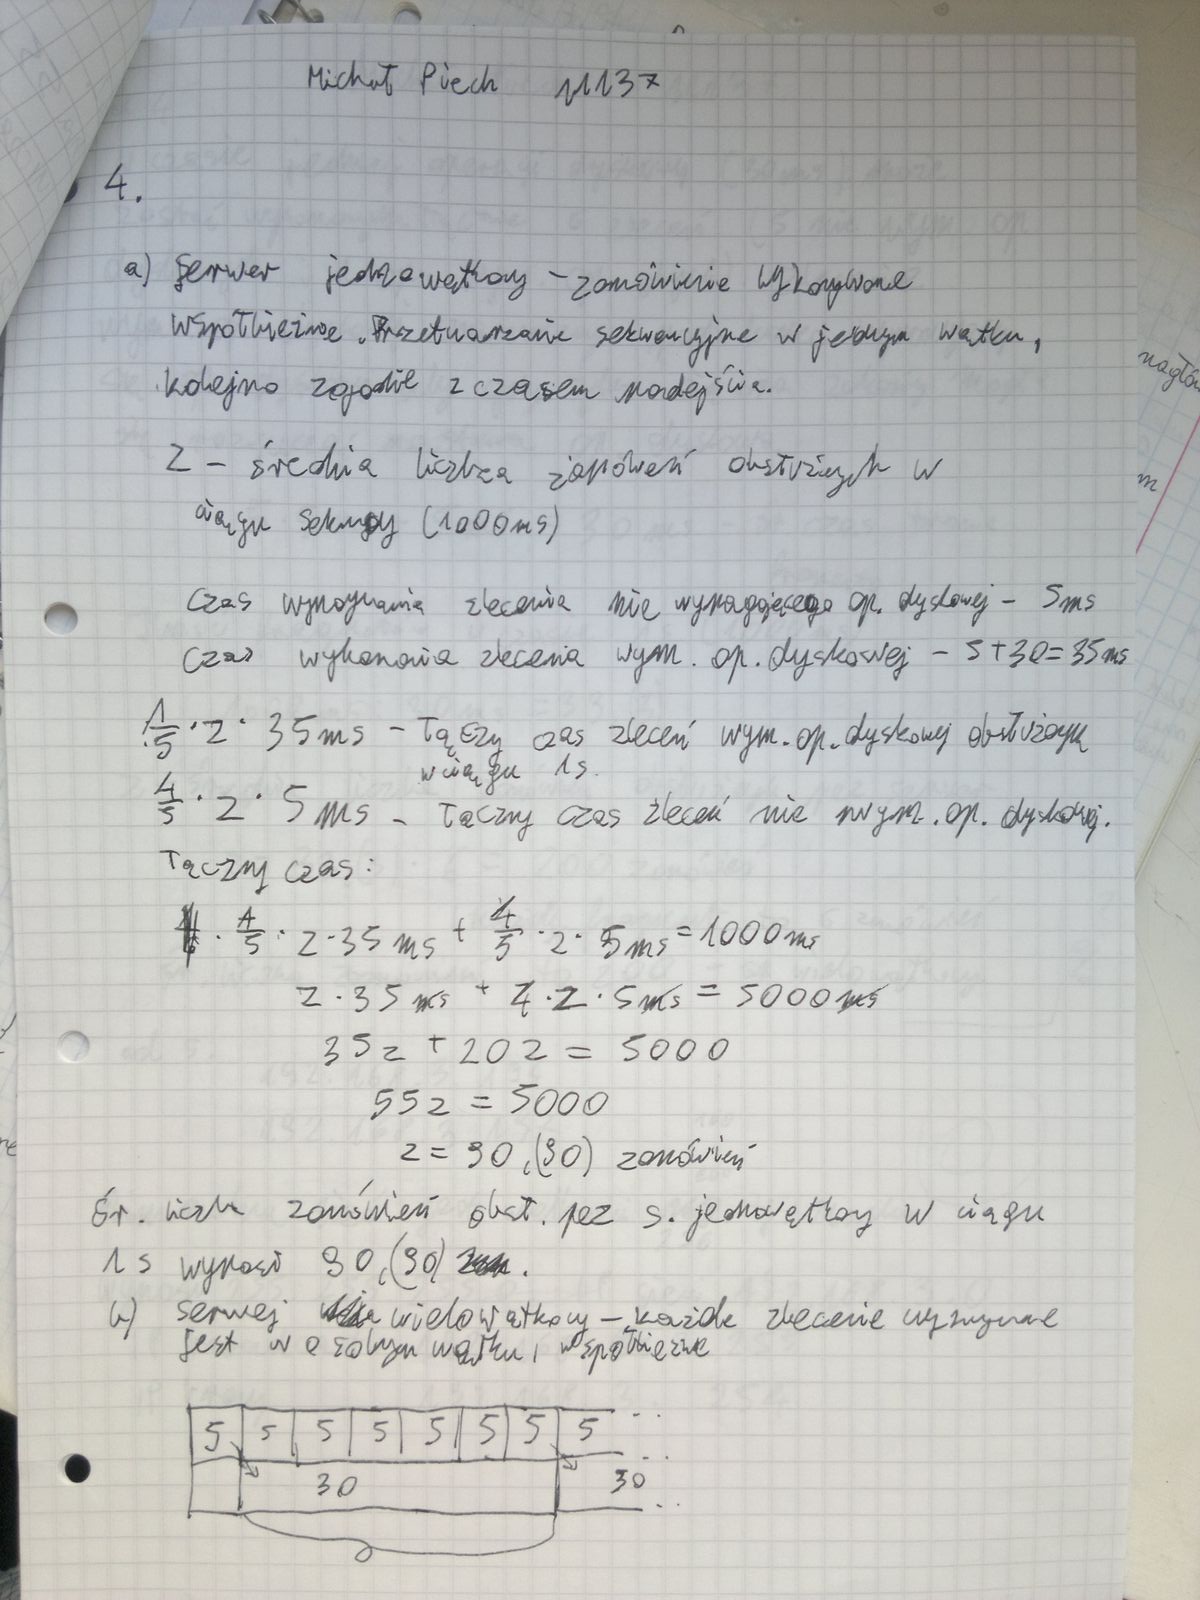 Michał Piech 11137
4.
a) Serwer jednowątkowy - zamówienie wykonywane
współbieżnie. Przetwarzanie sekwencyjne w jednym wątku,
kolejno zgodnie z czasem nadejścia.
z - średnia liczba zamówień obsłużonych w
ciągu sekundy (1000ms)
czas wykonywania zlecenia nie wymagającego op. dyskowej - 5ms
czas wykonania zlecenia wym. op. dyskowej - 5+30=35ms
1/5 · z · 35ms - łączny czas zleceń wym. op. dyskowej obsłużonych
w ciągu 1s.
4/5 · z · 5ms - łączny czas zleceń nie wym. op. dyskowej.
Łączny czas:
· 1/5 · z · 35 ms + 4/5 · z · 5ms = 1000ms
z · 35 ms + 4 · z · 5ms = 5000ms
35z + 20z = 5000
55z = 5000
z = 90,(90) zamówień
Śr. liczba zamówień obsł. przez s. jednowątkowy w ciągu
1s wynosi 90,(90)
b) serwej wielowątkowy - każde zlecenie wykonywane
jest w osobnym wątku, współbieżnie
5 5 5 5 5 5 5 5 ...
30 30 ...
nagłów
m